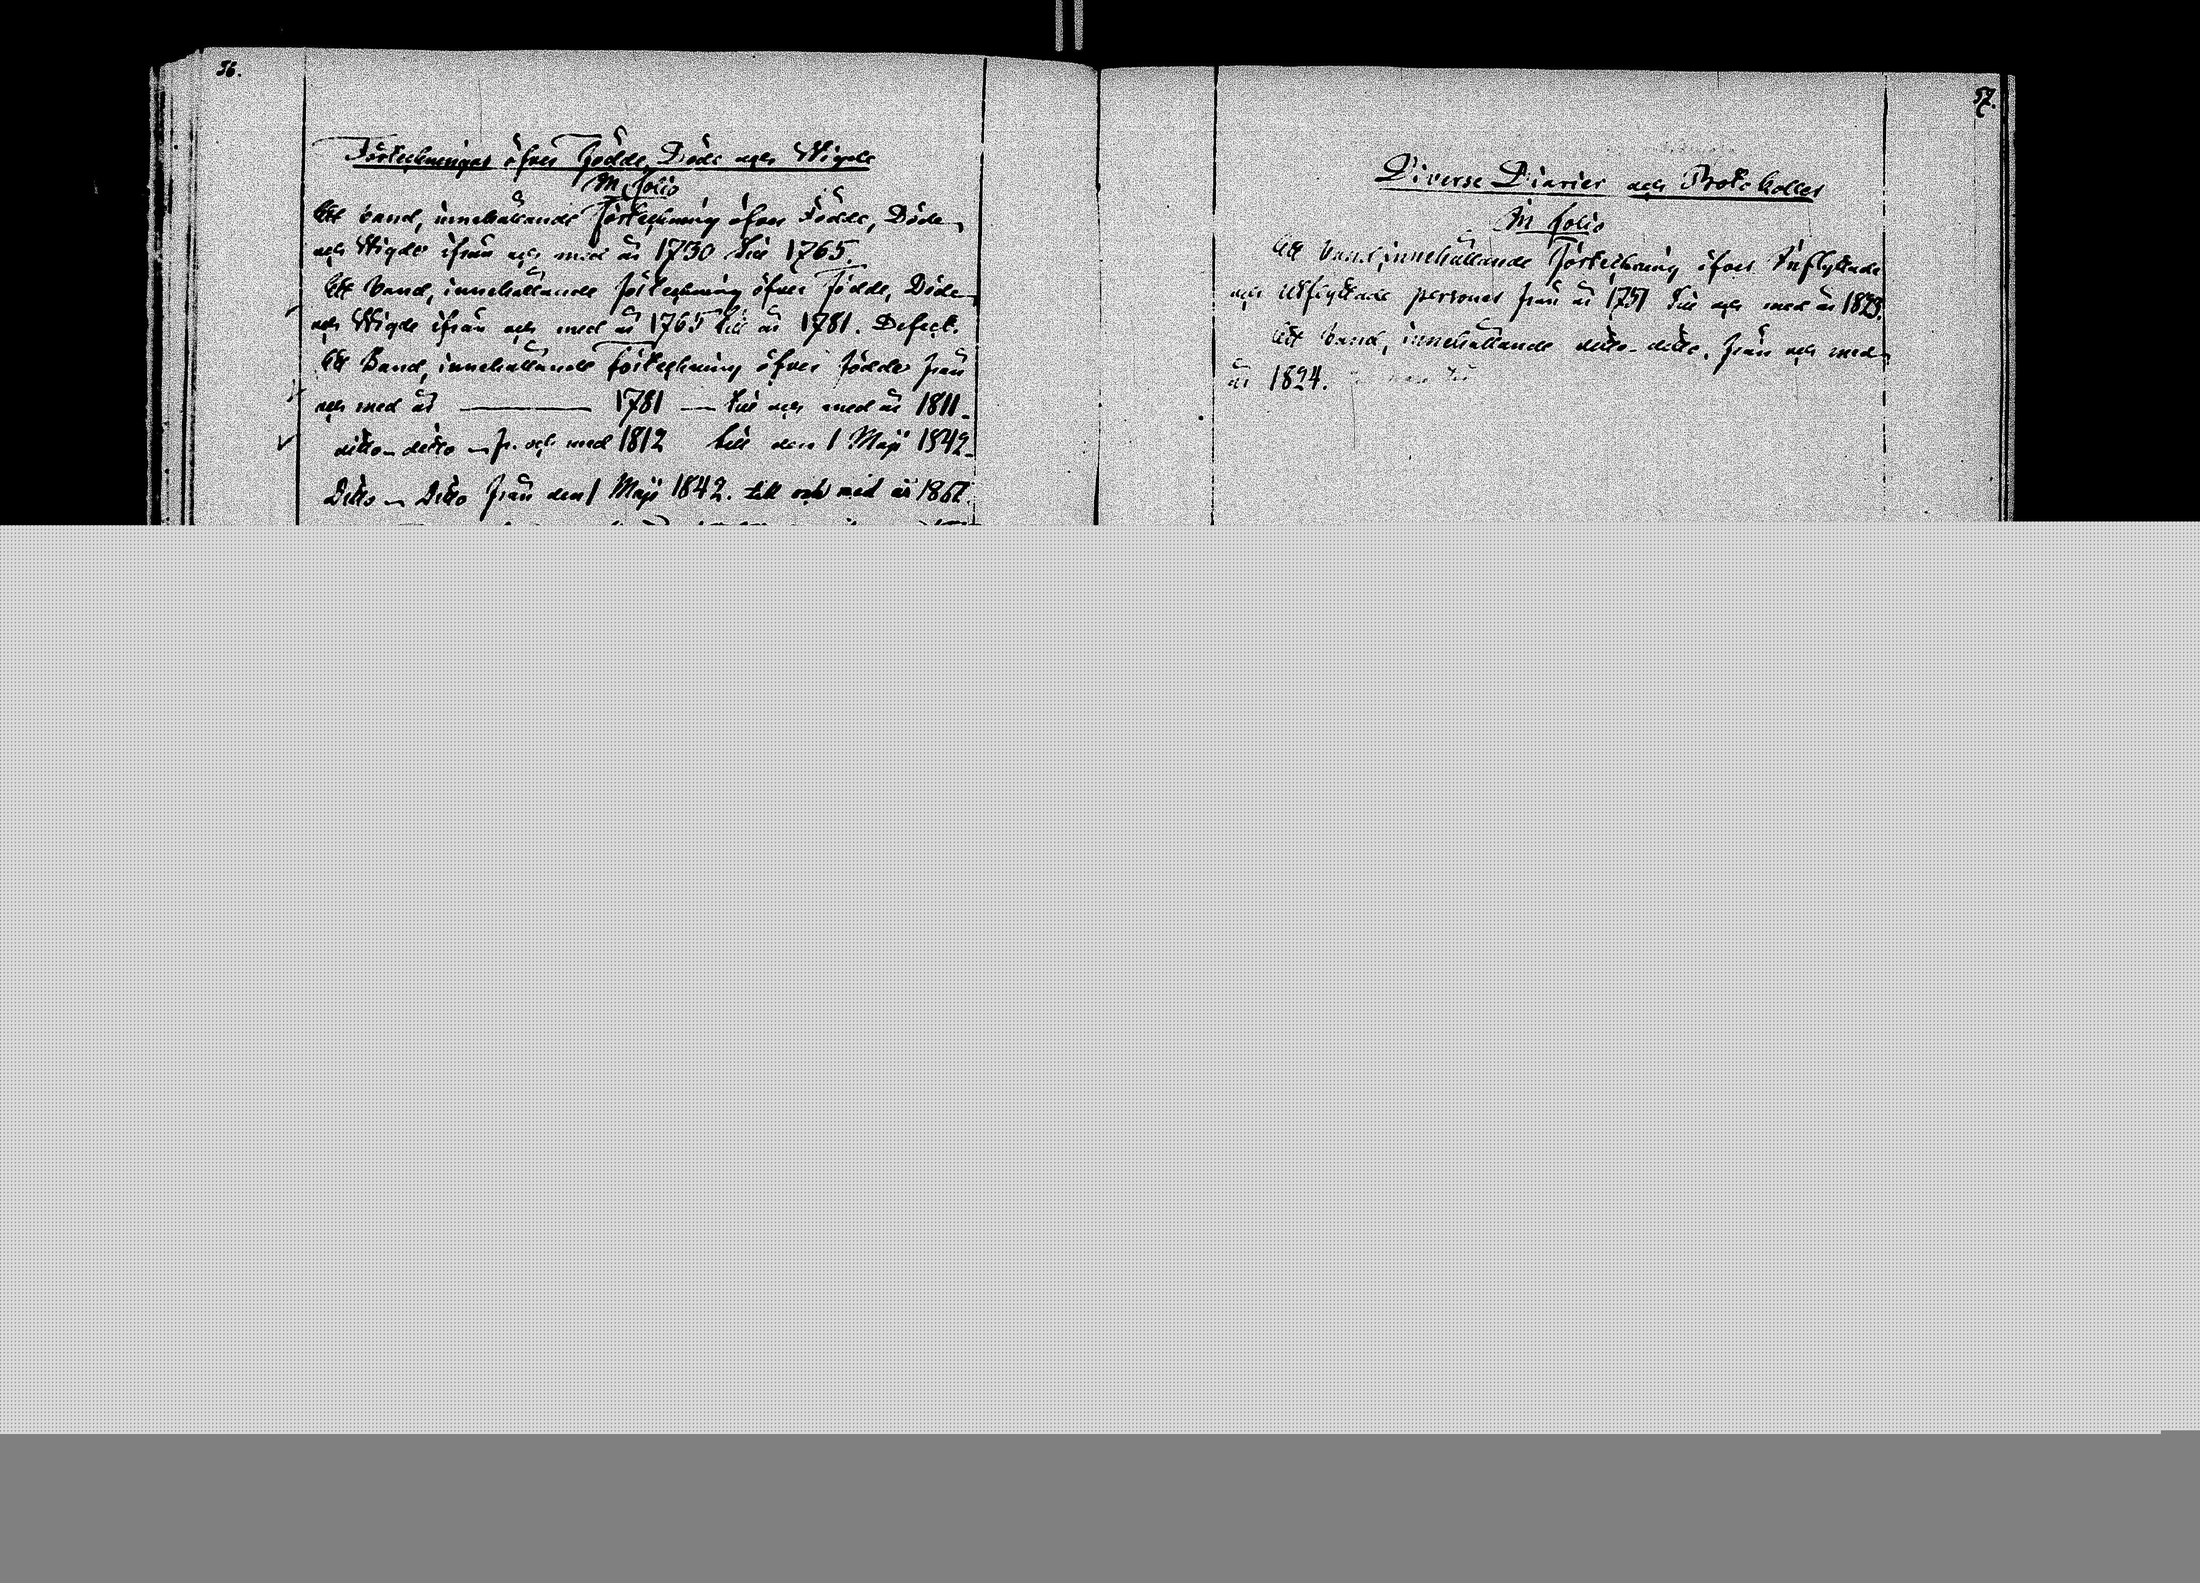 56.
Förteckningar öfver Födde, Döde och Wigde
In folio
Ett band, innehållande Förteckning öfver Födde, Döde
och Wigde ifrån och med år 1730 till 1765.
Ett band, innehållande förteckning öfver Födde, Döde
och Wigde ifrån och med år 1765 till år 1781. Defect.
Ett Band, innehållande förteckning öfver födde från
och med år — 1781 — till och med år 1811.
ditto - ditto - fr. och med 1812 till den 1 Maji 1842.
Ditto - Ditto från den 1 Maji 1842. till och med år 1867.
57.
Diverse Diarier och Protokoller
In folio
Ett band, innehållande Förteckning öfver Inflyttade
och Utflyttade personer från år 1751 till och med år 1823.
Ett band, innehållande ditto-ditto, från och med
år 1824.